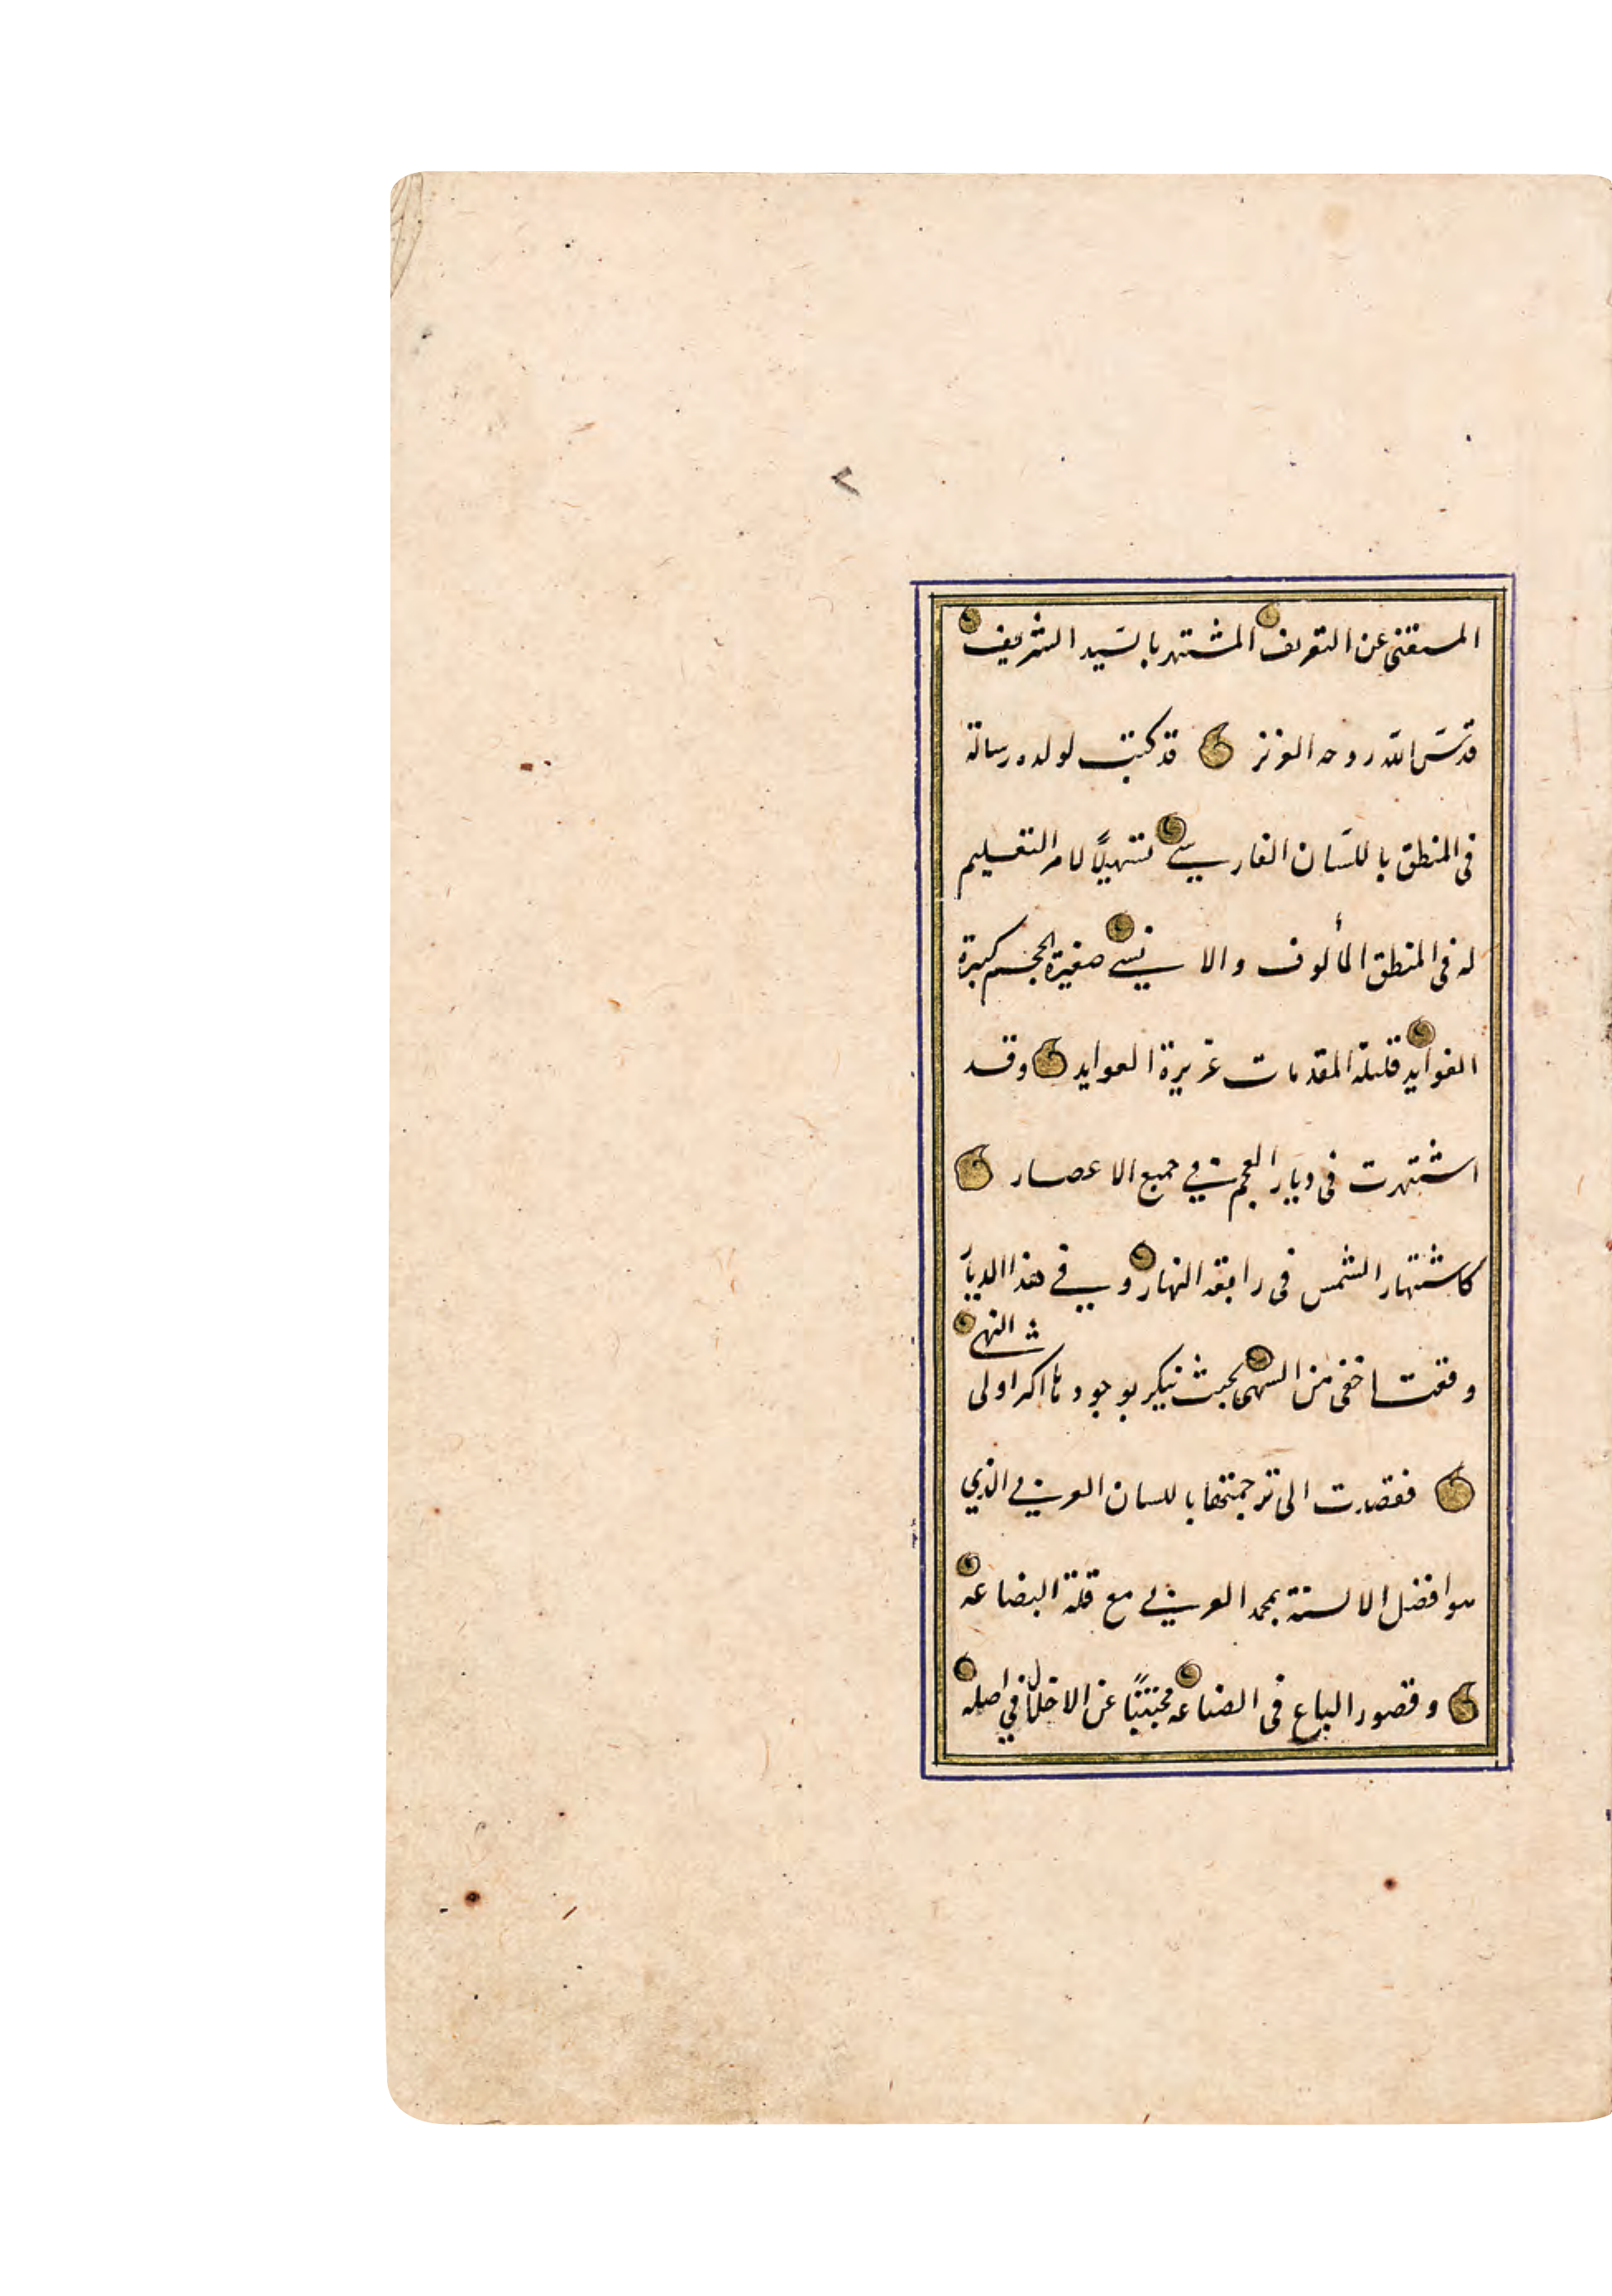 المستغنى عن التعريف المشتهر بالسَّيد الشريف
قدّسَ اللّه روحه العزيز قد كتب لولده رسالة
فى المنطق باللسَان الفارسي تسهيلًا لامر التعليم
له فى المنطق المألوف والانسي صغيرة الحجم كبيرة
الفوايد قليلة المقدمات غزيرة العوايد وقد
اشتهرت فى ديار العجم في جميع الاعصار
كاشتهار الشمس فى رابعة النهار وفي هذا الديار
وقعت اخفى من السهى بحيث ينكر بوجودها اكثر اولى النهى
فقصدت الى ترجمتها باللسان العربي الذي
هوا فضل الالسنة بمحمد العربي مع قلة البضاعه
وقصور الباع فى الصناعه مجتنبًا عن الاخلال في اصله